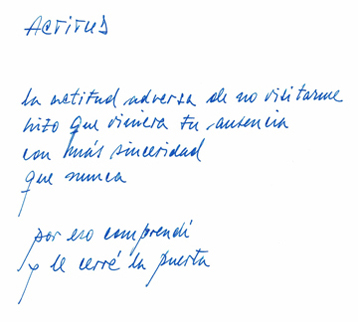 ACTITUD
la actitud adversa de no visitarme
hizo que viniera tu ausencia
con más sinceridad
que nunca
por eso comprendí
y le cerré la puerta